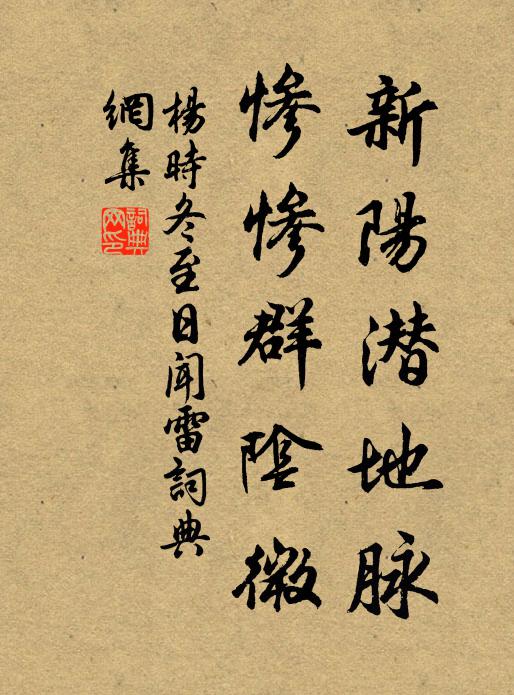 新陽潜地脉
慘慘群陰微
楊時冬至日聞雷詞典
網集
詞典网印